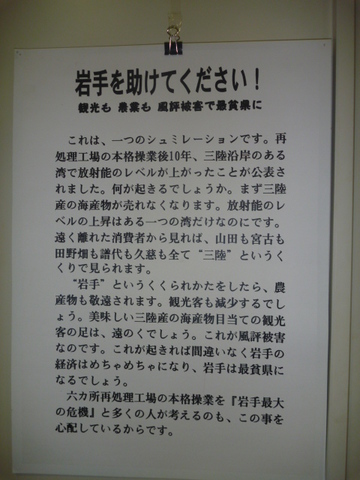 岩手を助けてください！
観光も 農業も 風評被客で最貧県に
これは、一つのシュミレーションです。再
処理工場の本格操業後10年、三陸沿岸のある
湾で放射能のレベルが上がったことが公表さ
れました。何が起きるでしょうか。まず三陸
産の海産物が売れなくなります。放射能のレ
ベルの上昇はある一つの湾だけなのにです。
遠く離れた消費者から見れば、山田も宮古も
田野畑も譜代も久慈も全て“三陸”というく
くりで見られます。
“岩手”というくくられかたをしたら、農
産物も敬遠されます。観光客も減少するでし
ょう。美味しい三陸産の海産物目当ての観光
客の足は、遠のくでしょう。これが風評被害
なのです。これが起きれば間違いなく岩手の
経済はめちゃめちゃになり、岩手は最貧県に
なるでしょう。
六カ所再処理工場の本格操業を『岩手最大
の危機』と多くの人が考えるのも、この事を
心配しているからです。